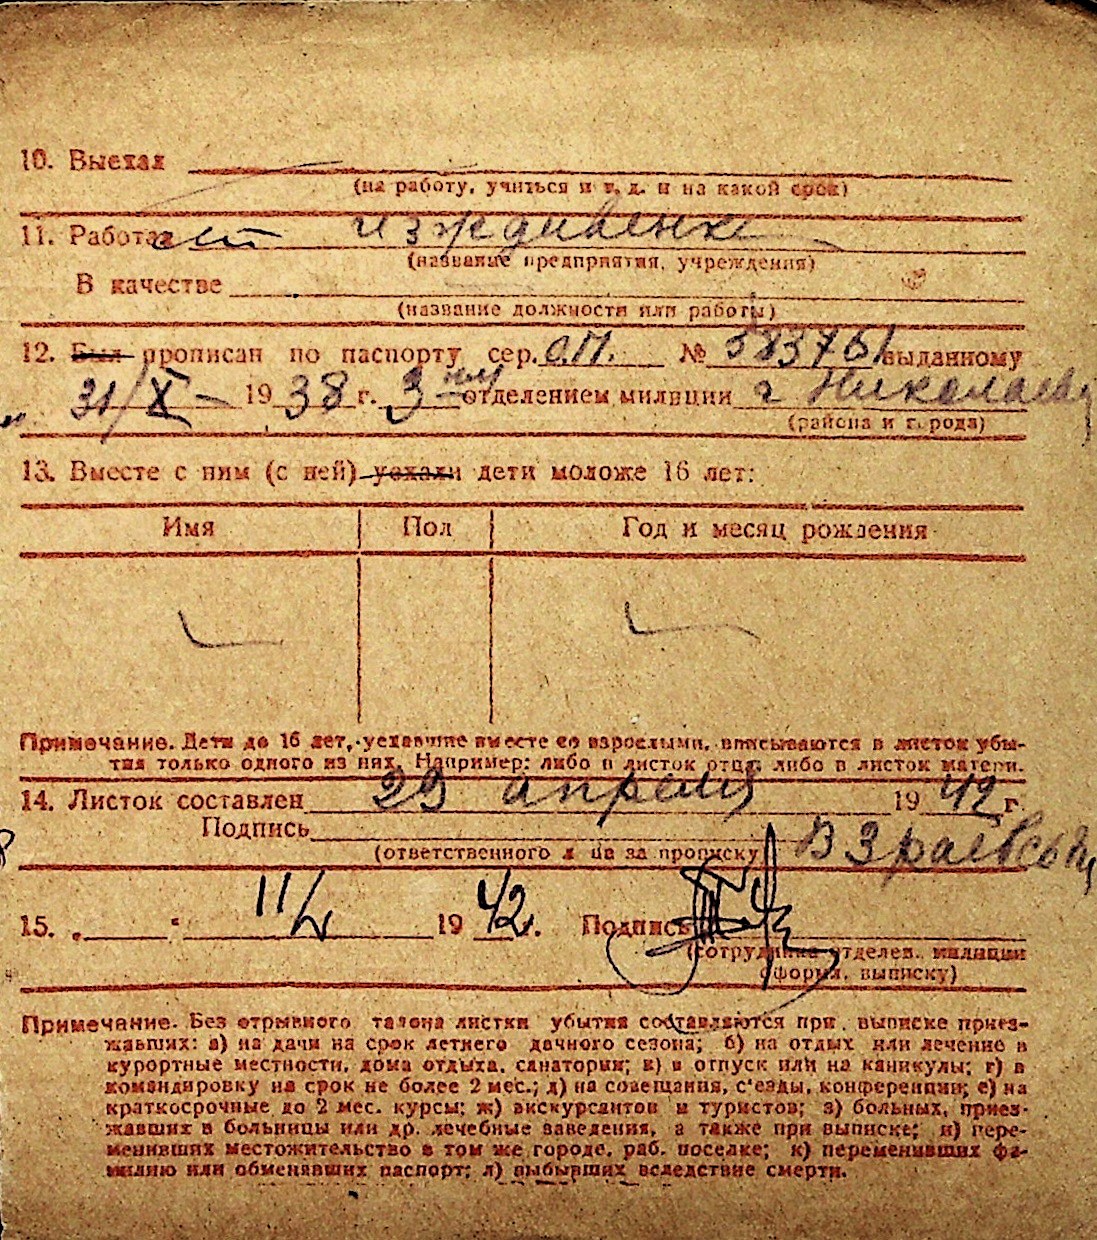 10. Выехал
(на работу, учиться и т. д. и на какой срок)
11. Работает иждивенка
(название предприятия, учреждения)
В качестве
(название должности или работы)
12. Был прописан по паспорту сер. С.П. № 583761 выданному
31/X – 1938 г. 3-ним отделением милиции г. Николаева
(района и города)
13. Вместе с ним (с ней) уехали дети моложе 16 лет:
Имя Пол Год и месяц рождения
Примечание. Дети до 16 лет, уехавшие вместе со взрослыми, вписываются в листок убы-
тия только одного из них. Например: либо в листок отца, либо в листок матери.
14. Листок составлен 29 апреля 1942 г.
Подпись
(ответственного лица за прописку)
15. „ “ 11/V 1942 г. Подпись
(сотрудника отделен. милиции
оформ. выписку)
Примечание. Без отрывного талона листки убытия составляются при выписке приез-
жавших: а) на дачи на срок летнего дачного сезона; б) на отдых или лечение в
курортные местности, дома отдыха, санатории; в) в отпуск или на каникулы; г) в
командировку на срок не более 2 мес.; д) на совещания, с'езды, конференции; е) на
краткосрочные до 2 мес. курсы; ж) экскурсантов и туристов; з) больных, приез-
жавших в больницы или др. лечебные заведения, а также при выписке; и) пере-
менивших местожительство в том же городе, раб. поселке; к) переменивших фа-
милию или обменявших паспорт; л) выбывших вследствие смерти.